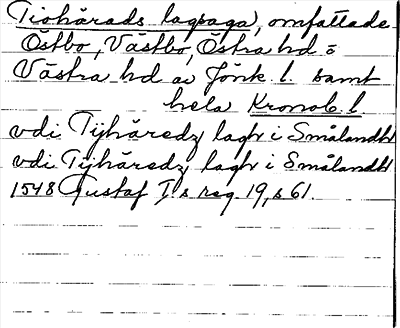 Tiohärads lagsaga, omfattade
Östbo, Västbo, Östra hd o
Västra hd av Jönk. l. samt
hela Kronob. l.
vdi Tijhäredz lagh i Smålandh
vdi Tijhäredz lagh i Smålandh
1548 Gustaf I:s reg. 19, s 61.